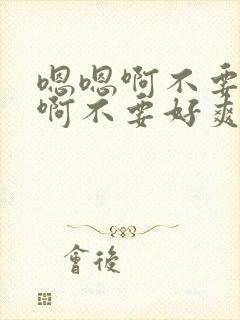 嗯嗯啊不要
啊不要好爽
會後